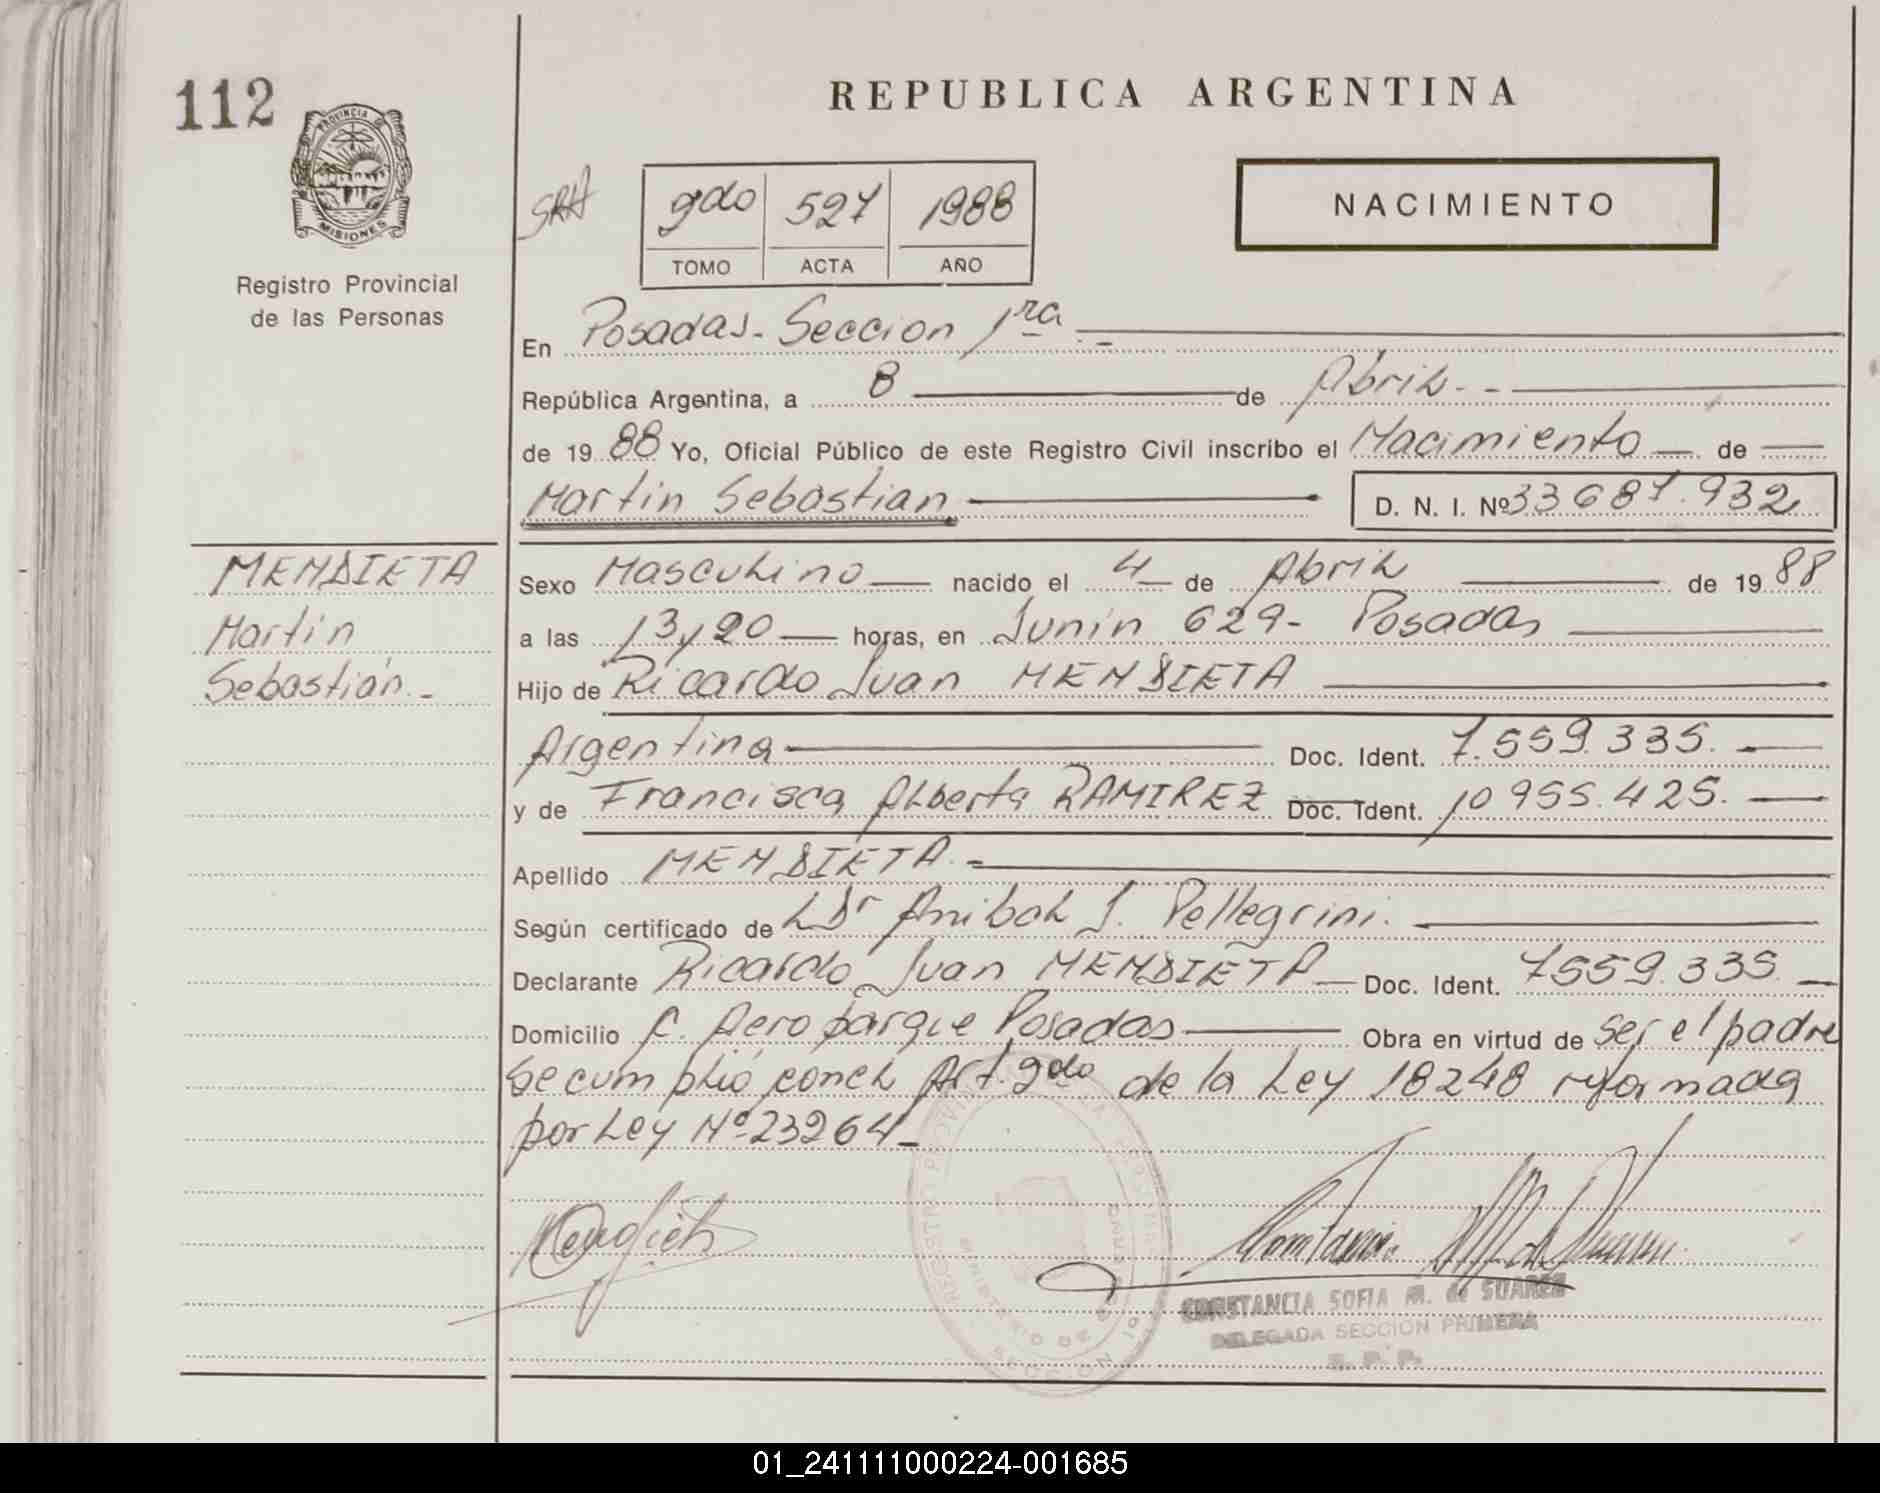 112
PROVINCIA DE
MISIONES
Registro Provincial
de las Personas
REPUBLICA ARGENTINA
NACIMIENTO
2do 527 1988
TOMO ACTA AÑO
En Posadas - Seccion 1ra
República Argentina, a 8 de Abril.-
de 19 88 Yo, Oficial Público de este Registro Civil inscribo el Nacimiento de
Martin Sebastian D. N. I. Nº 33687.932
MENDIETA
Martin
Sebastián.-
Sexo Masculino nacido el 4 de Abril de 19 88
a las 13y20 horas, en Junin 629- Posadas
Hijo de Ricardo Juan MENDIETA
Argentina Doc. Ident. 7.559.335.
y de Francisca Alberta RAMIREZ Doc. Ident. 10955.425.
Apellido MENDIETA.-
Según certificado de L Dr Anibal J. Pellegrini.
Declarante Ricardo Juan MENDIETA Doc. Ident. 7559.335.
Domicilio C. Aeroparque Posadas Obra en virtud de ser el padre
Se cumplió con el Art. 2do de la Ley 18248 reformada
por Ley Nº 23264-
CONSTANCIA SOFIA M. de SUAREZ
DELEGADA SECCION PRIMERA
R. P. P.
01_241111000224-001685